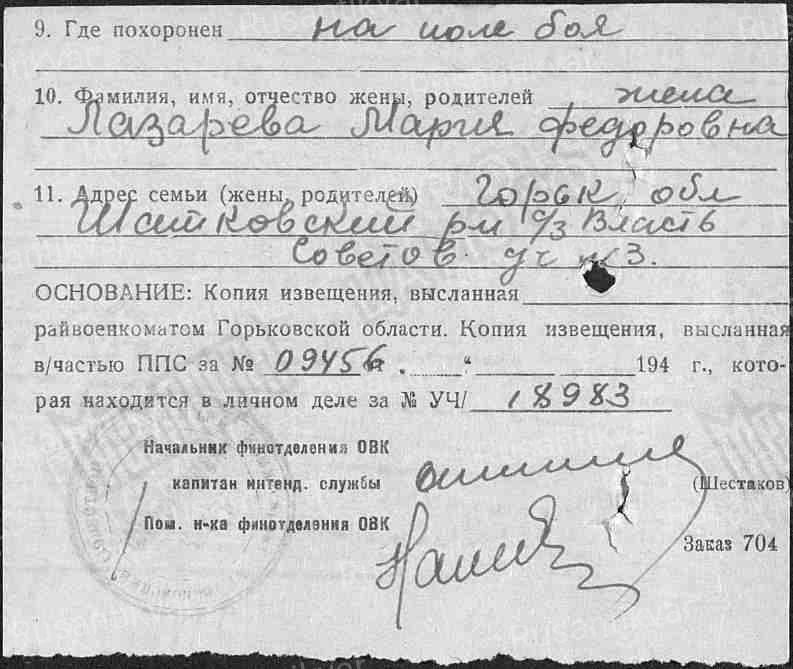 9. Где похоронен на поле боя
10. Фамилия, имя, отчество жены, родителей жена
Лазарева Мария Федоровна
11. Адрес семьи (жены, родителей) Горьк. обл
Шатковский рн с/з Власть
Советов уч №3.
ОСНОВАНИЕ: Копия извещения, высланная
райвоенкоматом Горьковской области. Копия извещения, высланная
в/частью ППС за № 09456. " 194 г., кото-
рая находится в личном деле за № УЧ/ 18983
Начальник финотделения ОВК
капитан интенд. службы (Шестаков)
Пом. н-ка финотделения ОВК
Заказ 704